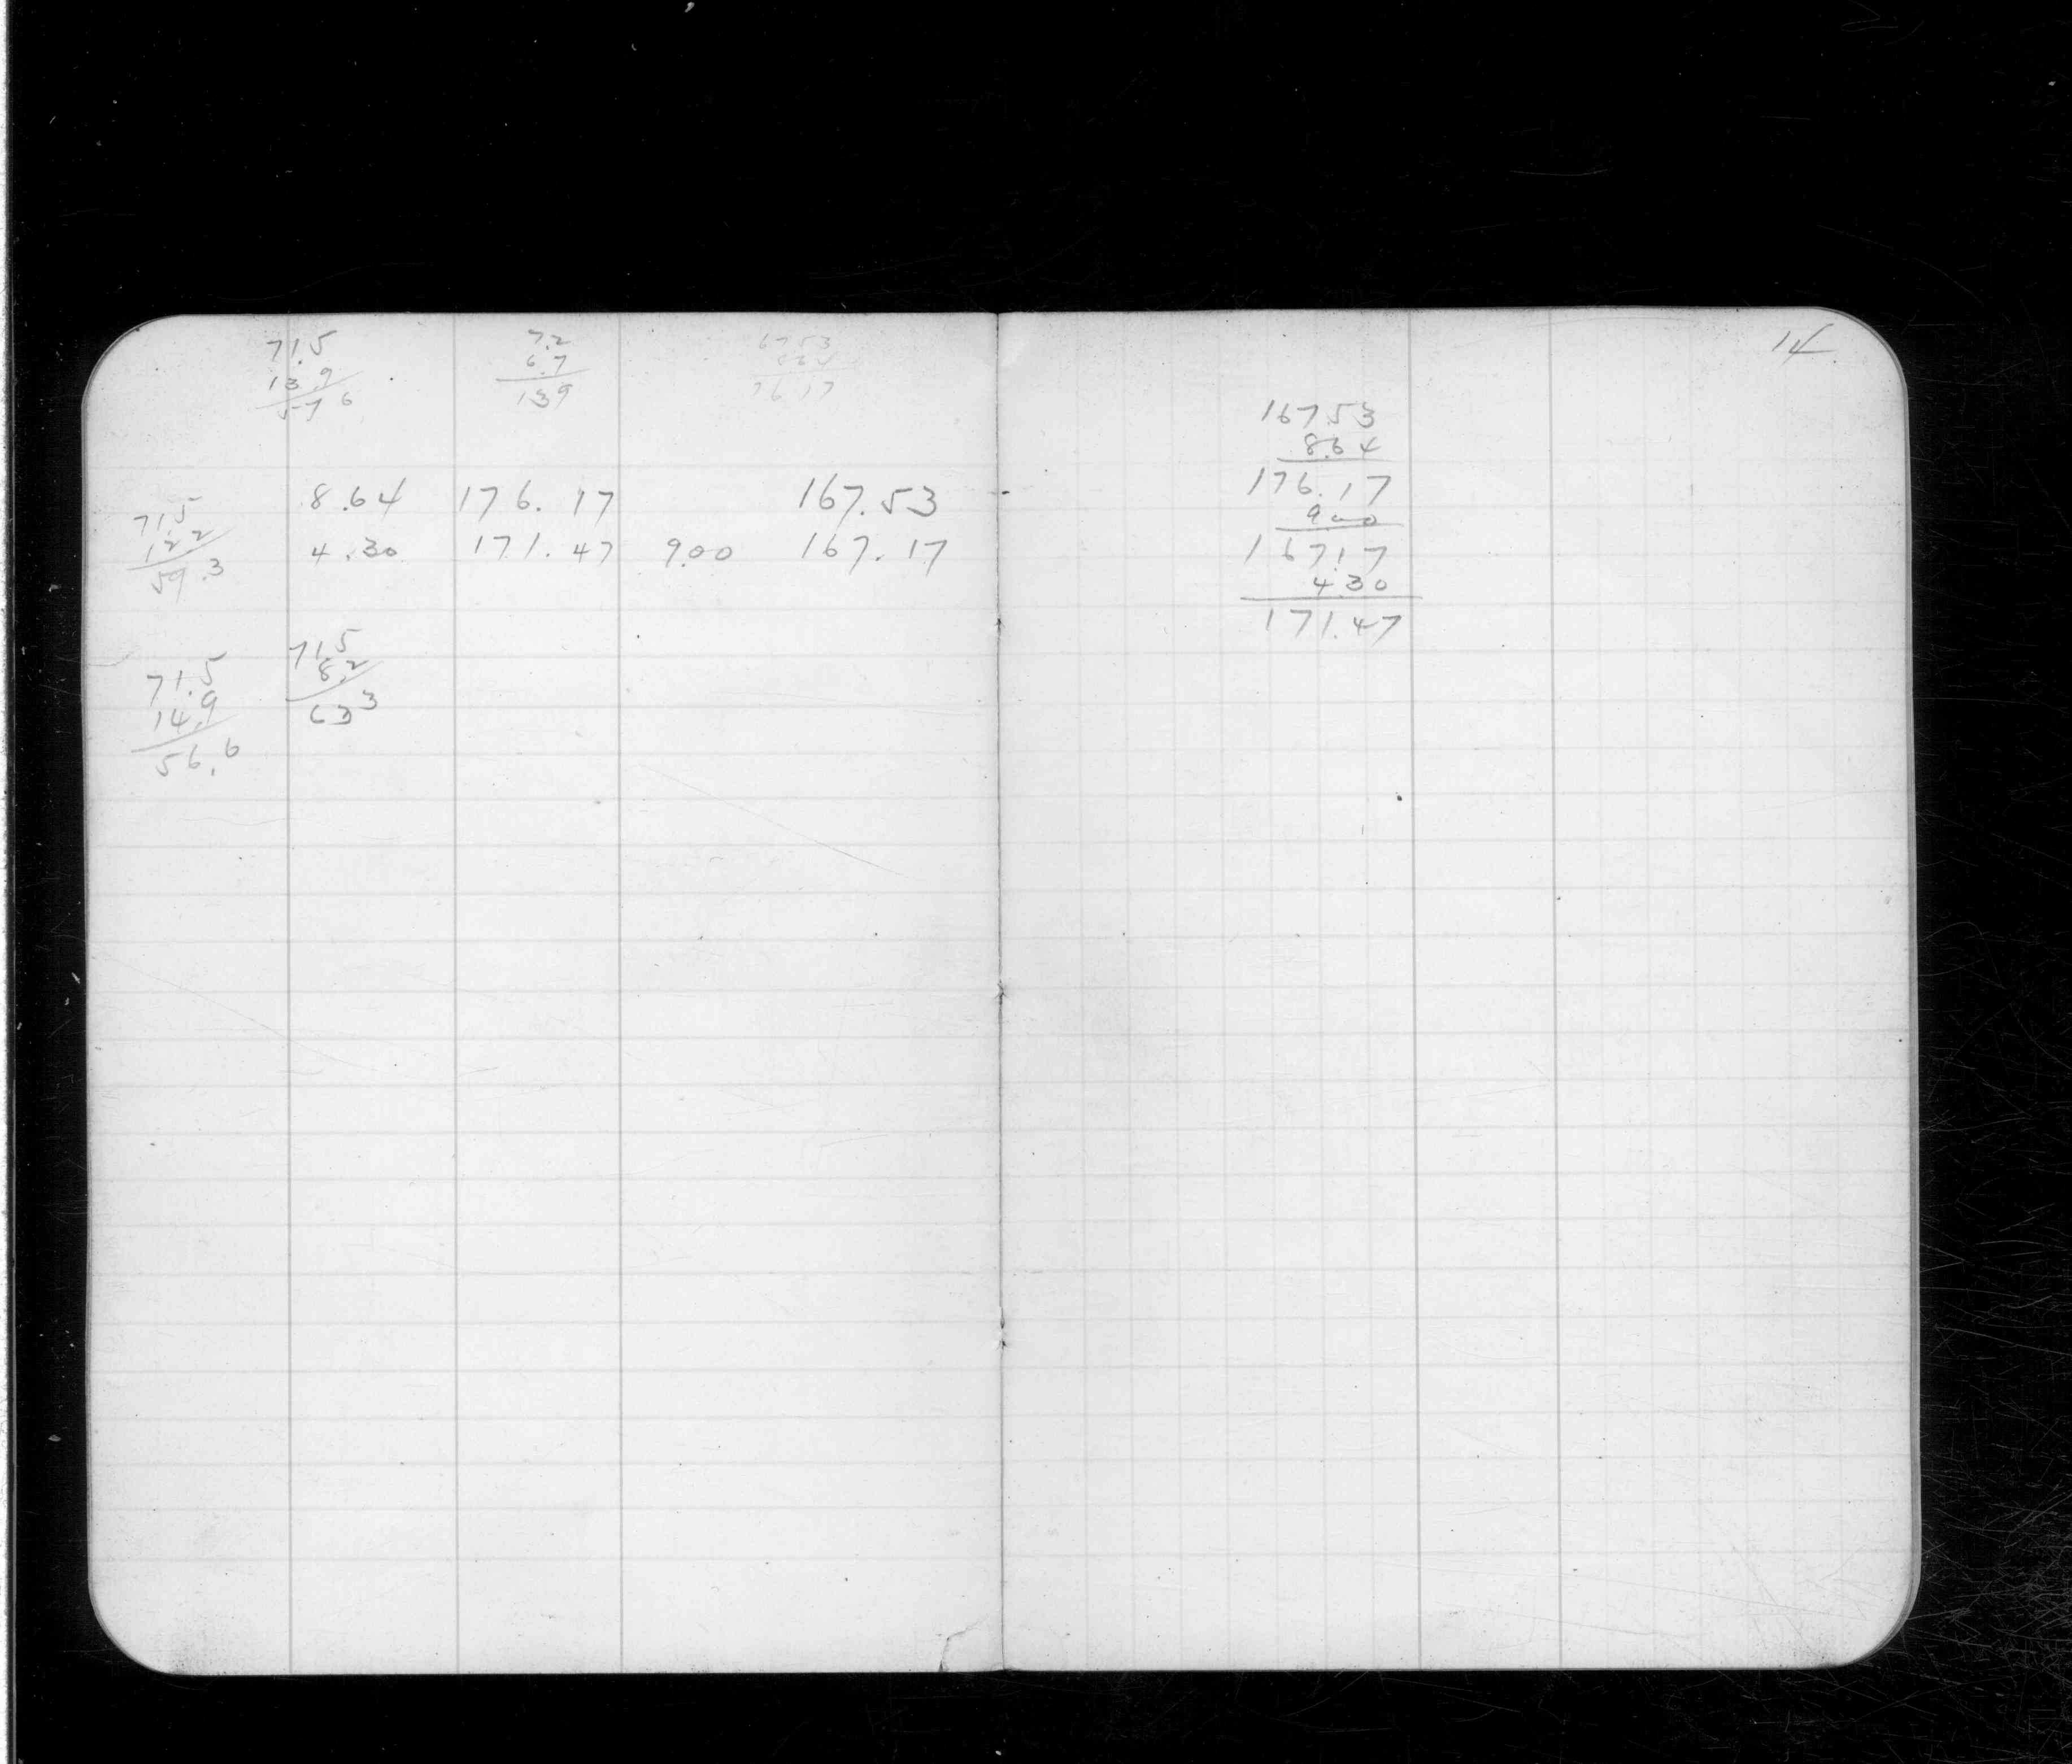 71.5
13.9
57 6
7.2
6.7
139
6753
76 17
8.64 176. 17 167.53
4.30 171.47 9.00 167.17
71.5
122
59.3
71.5
8.2
63 3
71.5
14.9
56.6
14
167 53
8.64
176.17
900
167.17
4.30
171.47